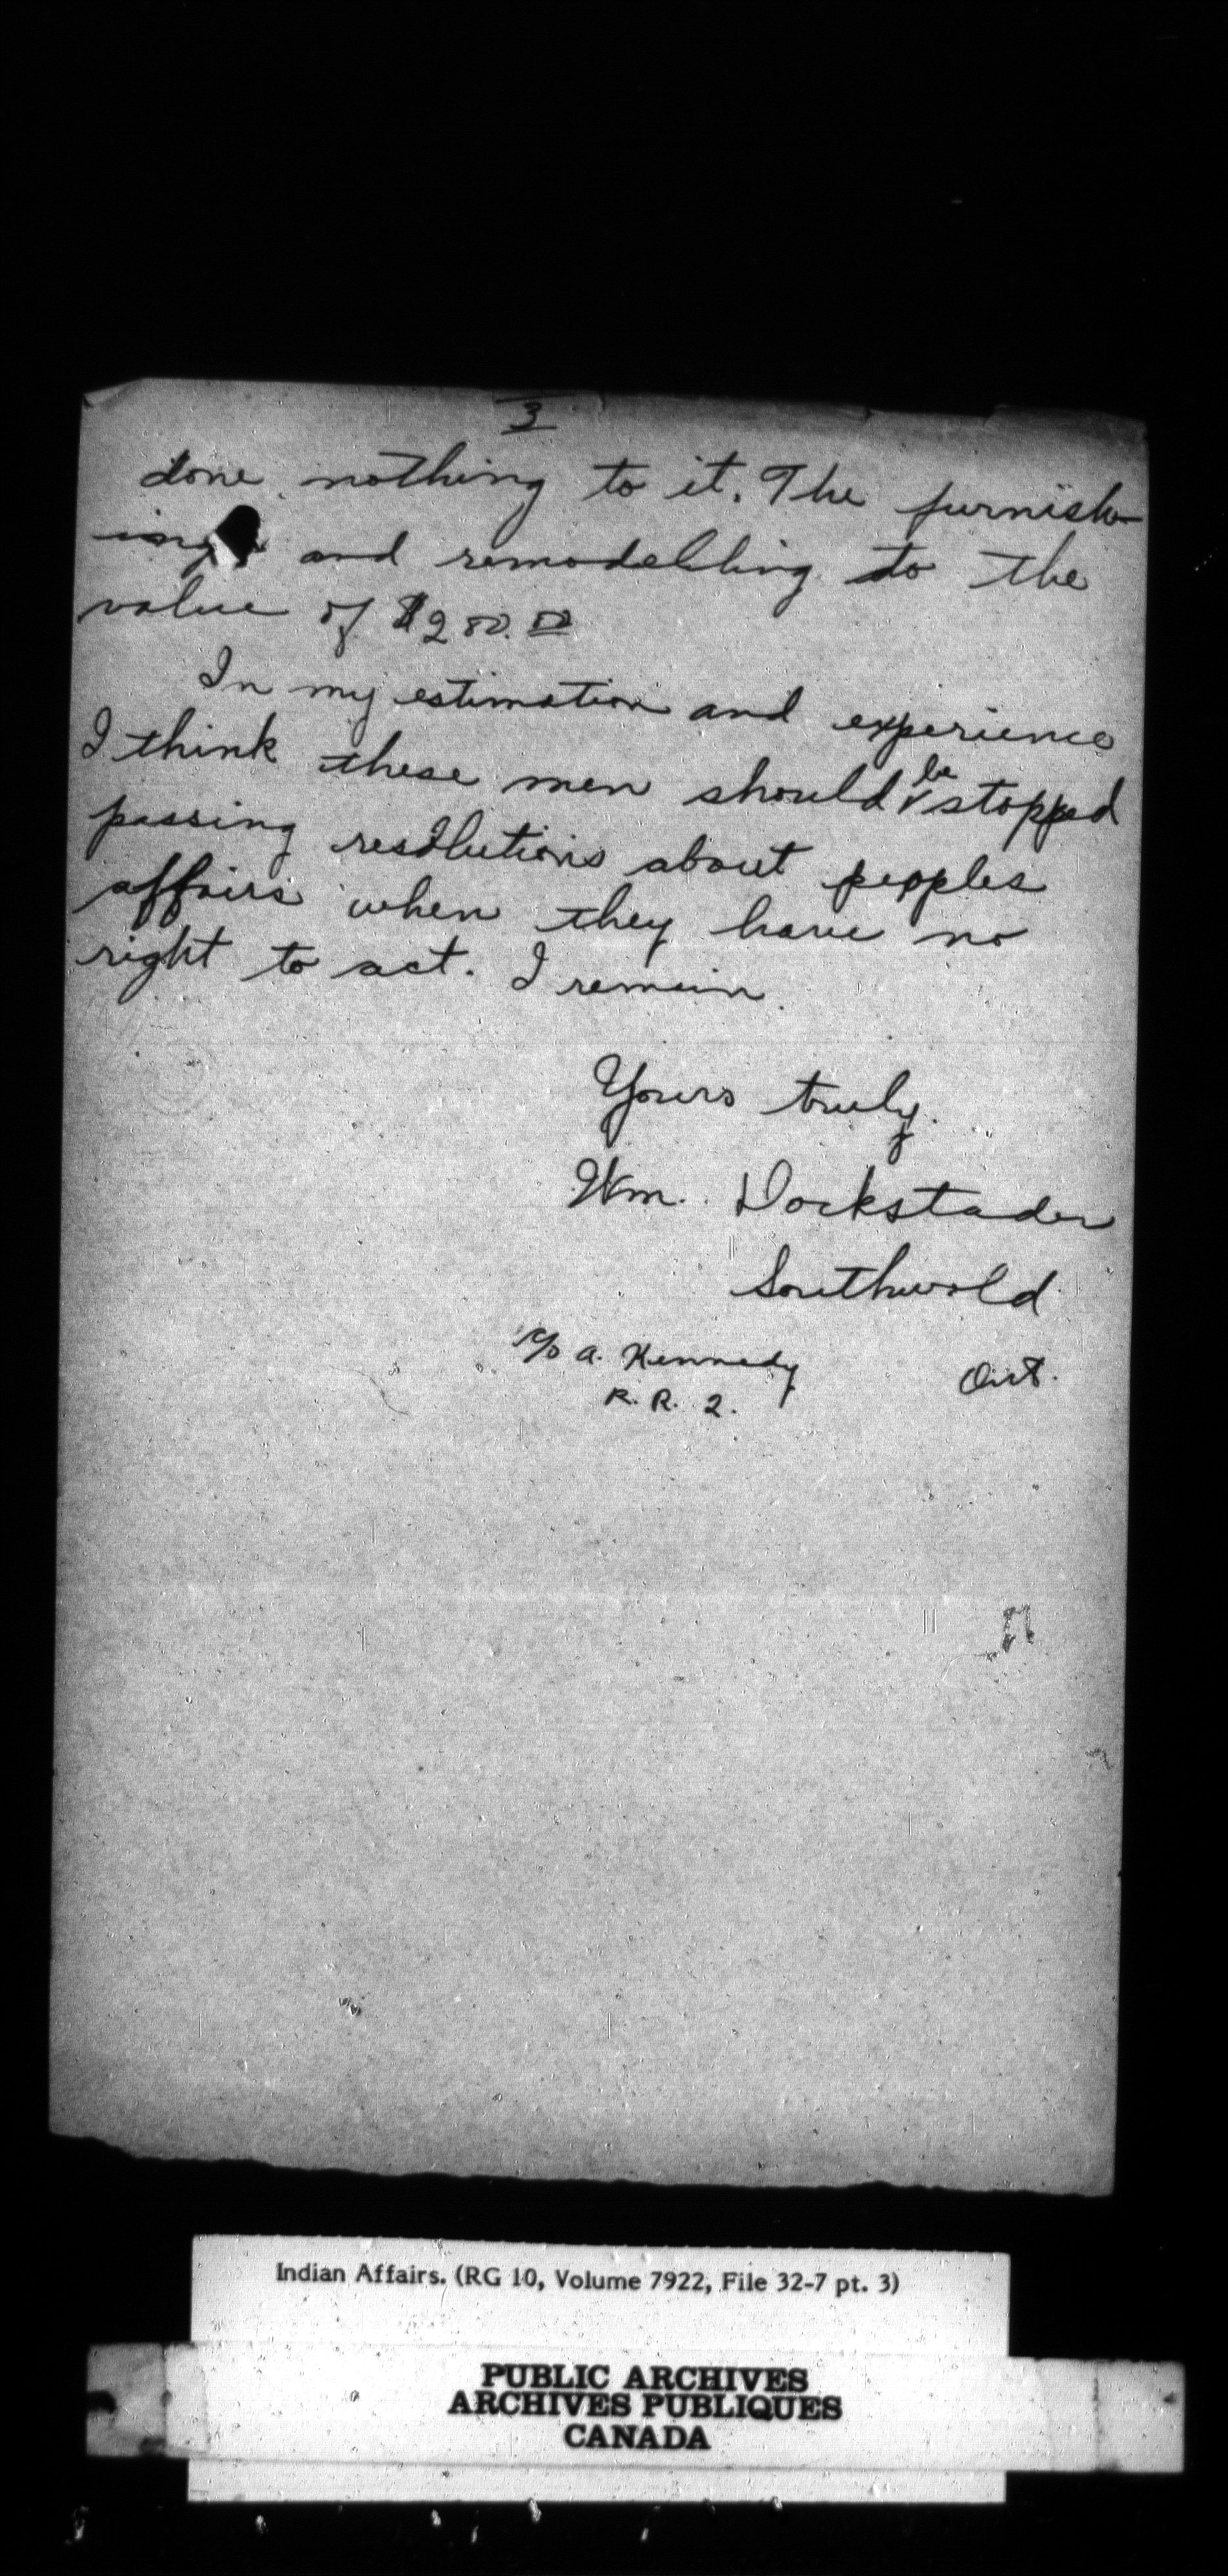 3
done nothing to it. The furnish-
ing and remodelling to the
value of $200.00
In my estimation and experience
I think these men should be stopped
passing resolutions about peoples
affairs when they have no
right to act. I remain
Yours truly.
Wm. Dockstader
Southwold
c/o A. Kennedy Ont.
R. R. 2.
Indian Affairs. (RG 10, Volume 7922, File 32-7 pt. 3)
PUBLIC ARCHIVES
ARCHIVES PUBLIQUES
CANADA